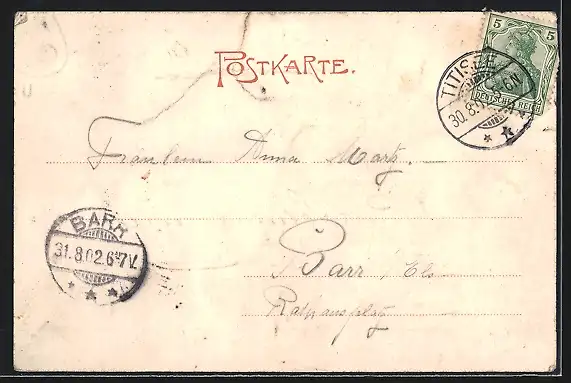 POSTKARTE.
5 5
DEUTSCHES REICH
TITISEE
30.8.02
Fräulein Anna Martz.
BARR
31.8.02.6-7V.
Barr / Els
Rathausplatz